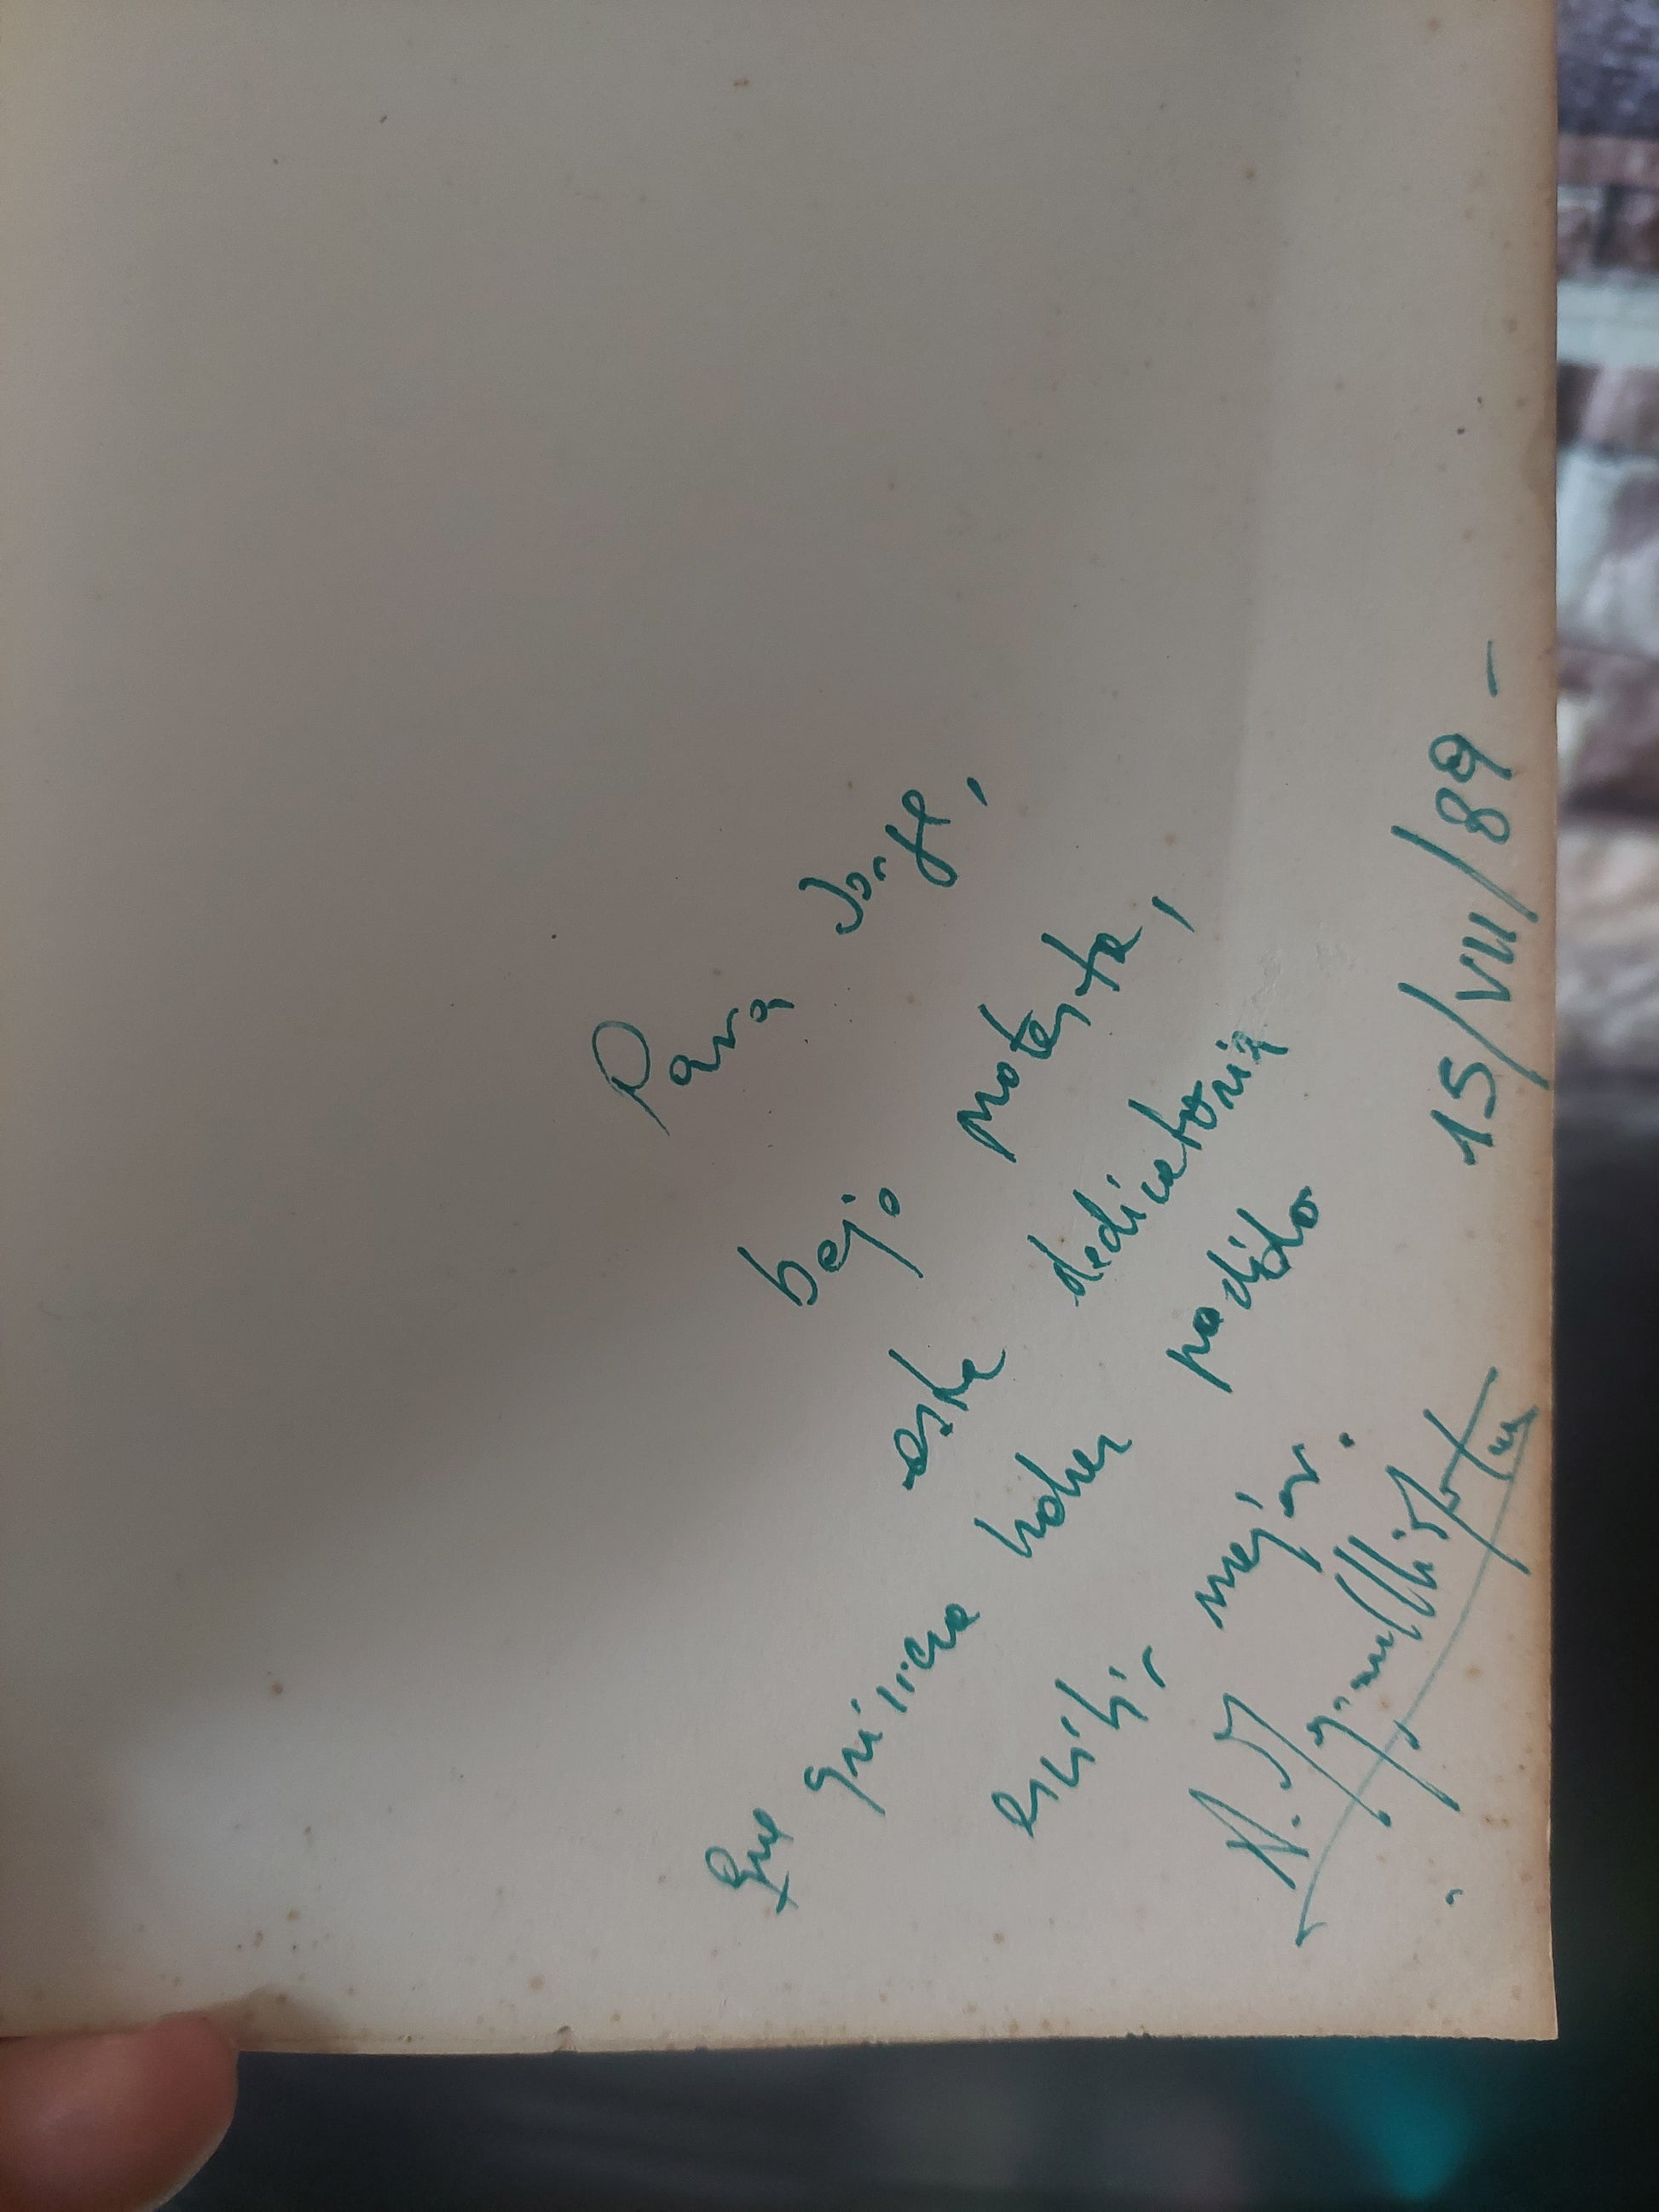 Para Jorge,
bajo protesta,
esta dedicatoria
que quisiera haber podido
escribir mejor.
15/VII/89 -